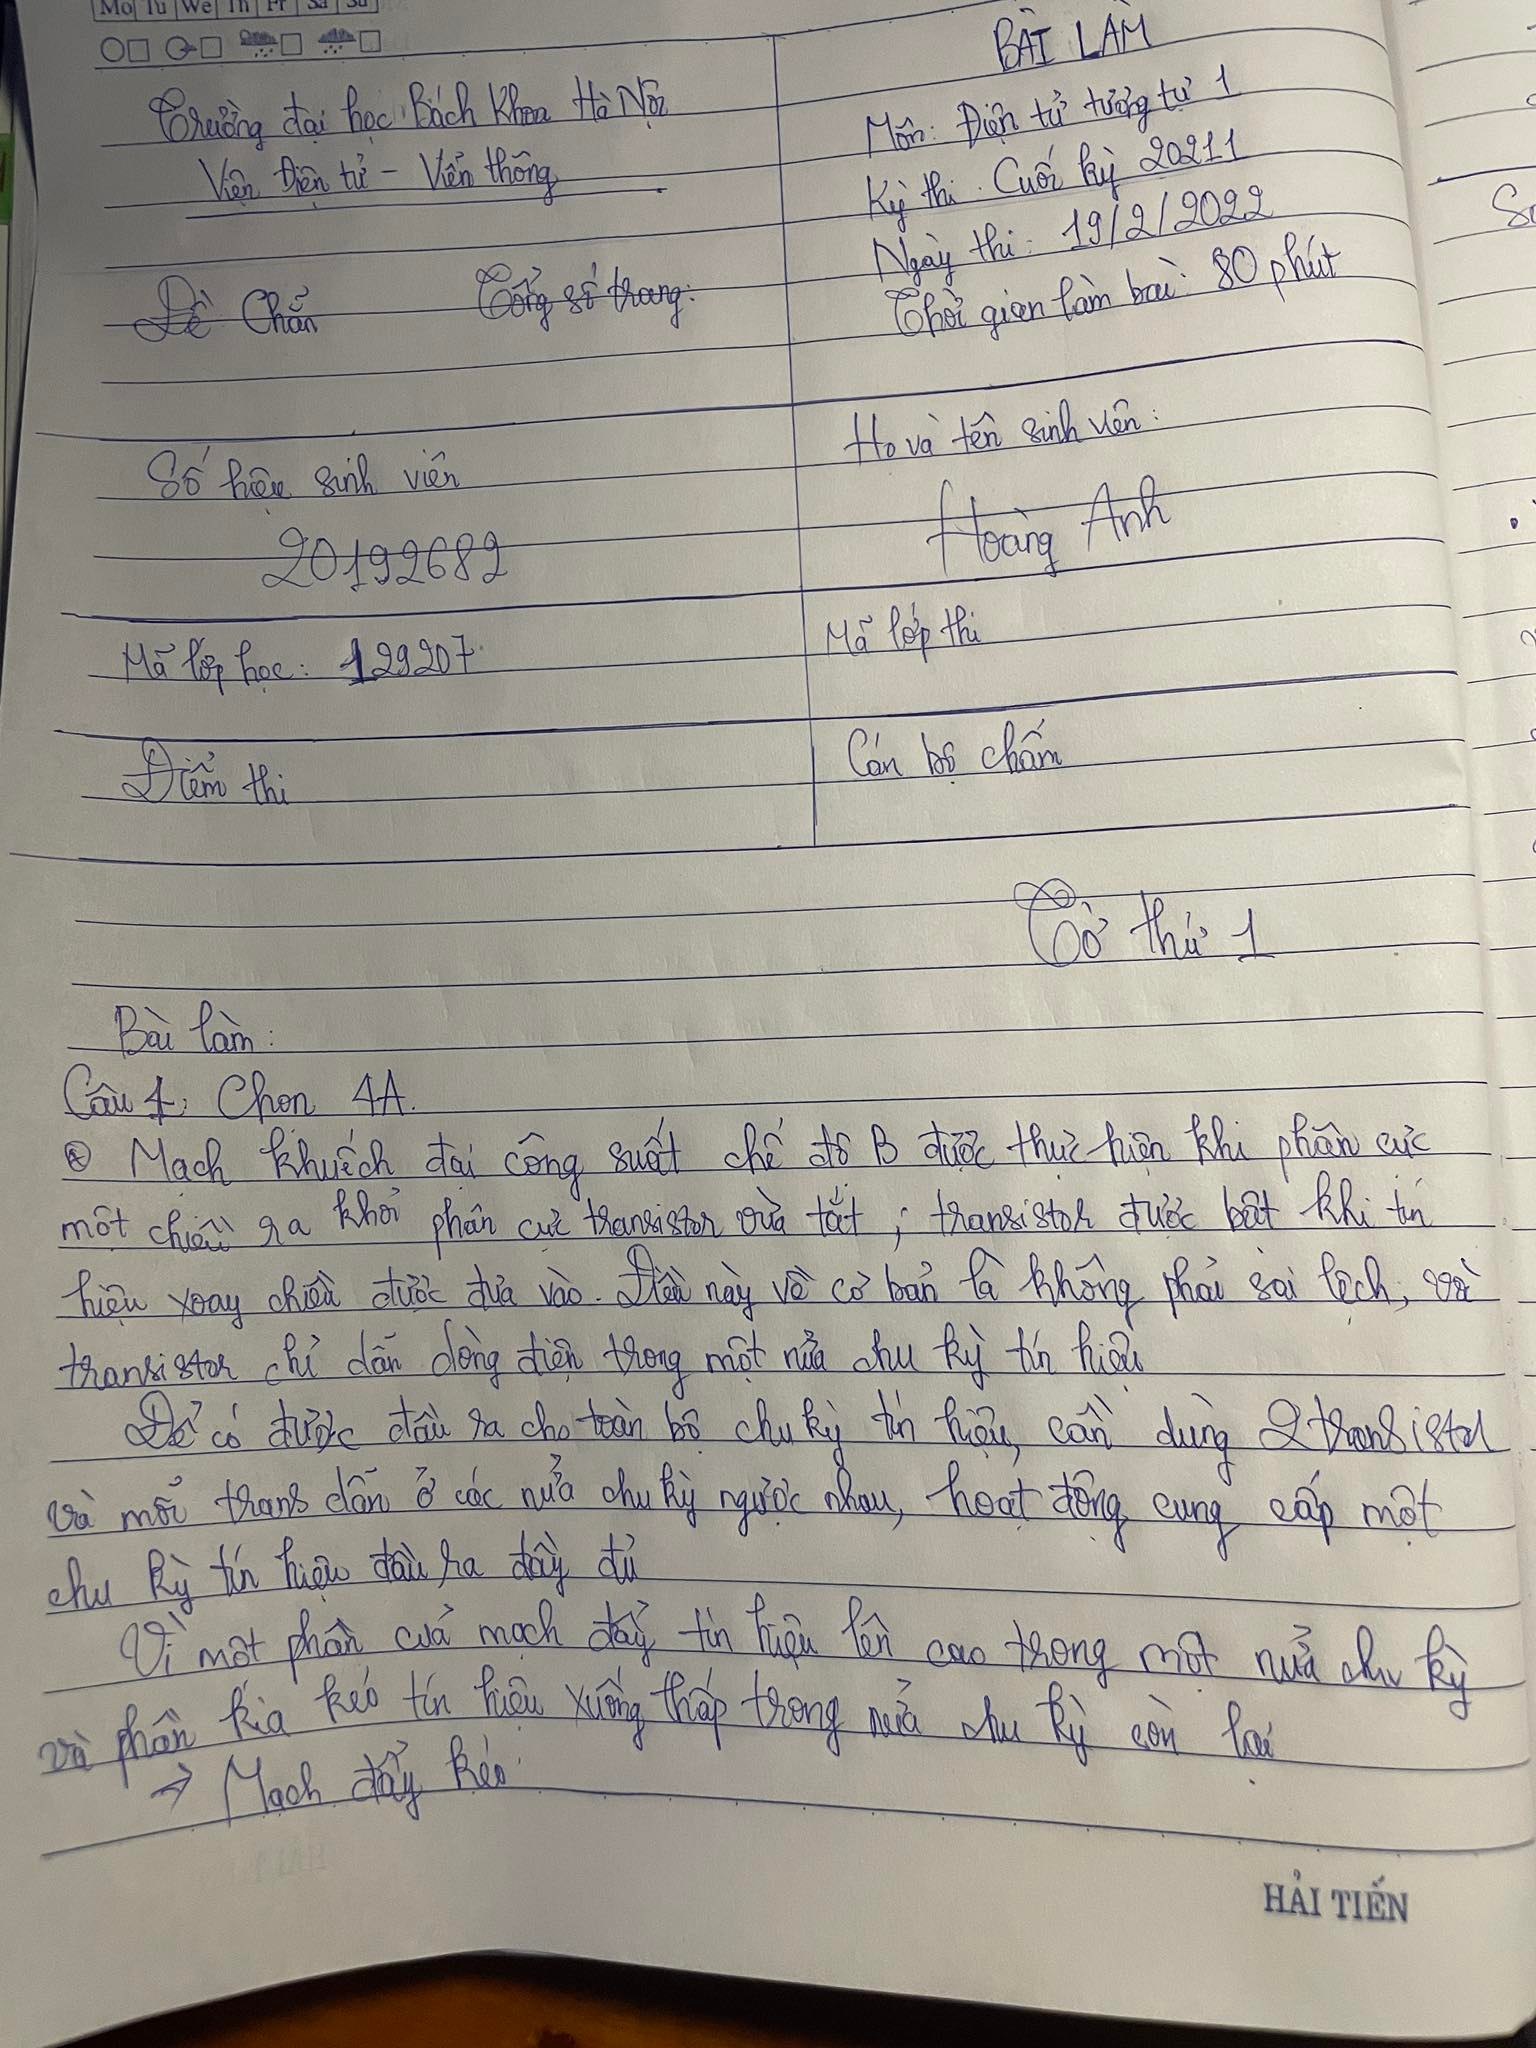 Mo Tu We Th Fr Sa Su
BÀI LÀM
Trường đại học Bách Khoa Hà Nội
Viện Điện tử - Viễn thông
Môn: Điện tử tương tự 1
Kỳ thi: Cuối kỳ 20211
Ngày thi: 19/2/2022
Thời gian làm bài: 80 phút
Đề Chẵn Tổng số trang:
Số hiệu sinh viên
Họ và tên sinh viên:
20192682
Hoàng Anh
Mã lớp học: 129207
Mã lớp thi
Điểm thi
Cán bộ chấm
Tờ thứ 1
Bài làm:
Câu 1: Chọn 4A.
Mạch khuếch đại công suất chế độ B được thực hiện khi phân cực
một chiều ra khỏi phân cực transistor vừa tắt, transistor được bật khi tín
hiệu xoay chiều được đưa vào. Điều này về cơ bản là không phải sai lệch, và
transistor chỉ dẫn dòng điện trong một nửa chu kỳ tín hiệu
Để có được đầu ra cho toàn bộ chu kỳ tín hiệu, cần dùng 2 transistor
và mỗi trans dẫn ở các nửa chu kỳ ngược nhau, hoạt động cung cấp một
chu kỳ tín hiệu đầu ra đầy đủ
Vì một phần của mạch đẩy tín hiệu lên cao trong một nửa chu kỳ
và phần kia kéo tín hiệu xuống thấp trong nửa chu kỳ còn lại
→ Mạch đẩy kéo
HẢI TIẾN